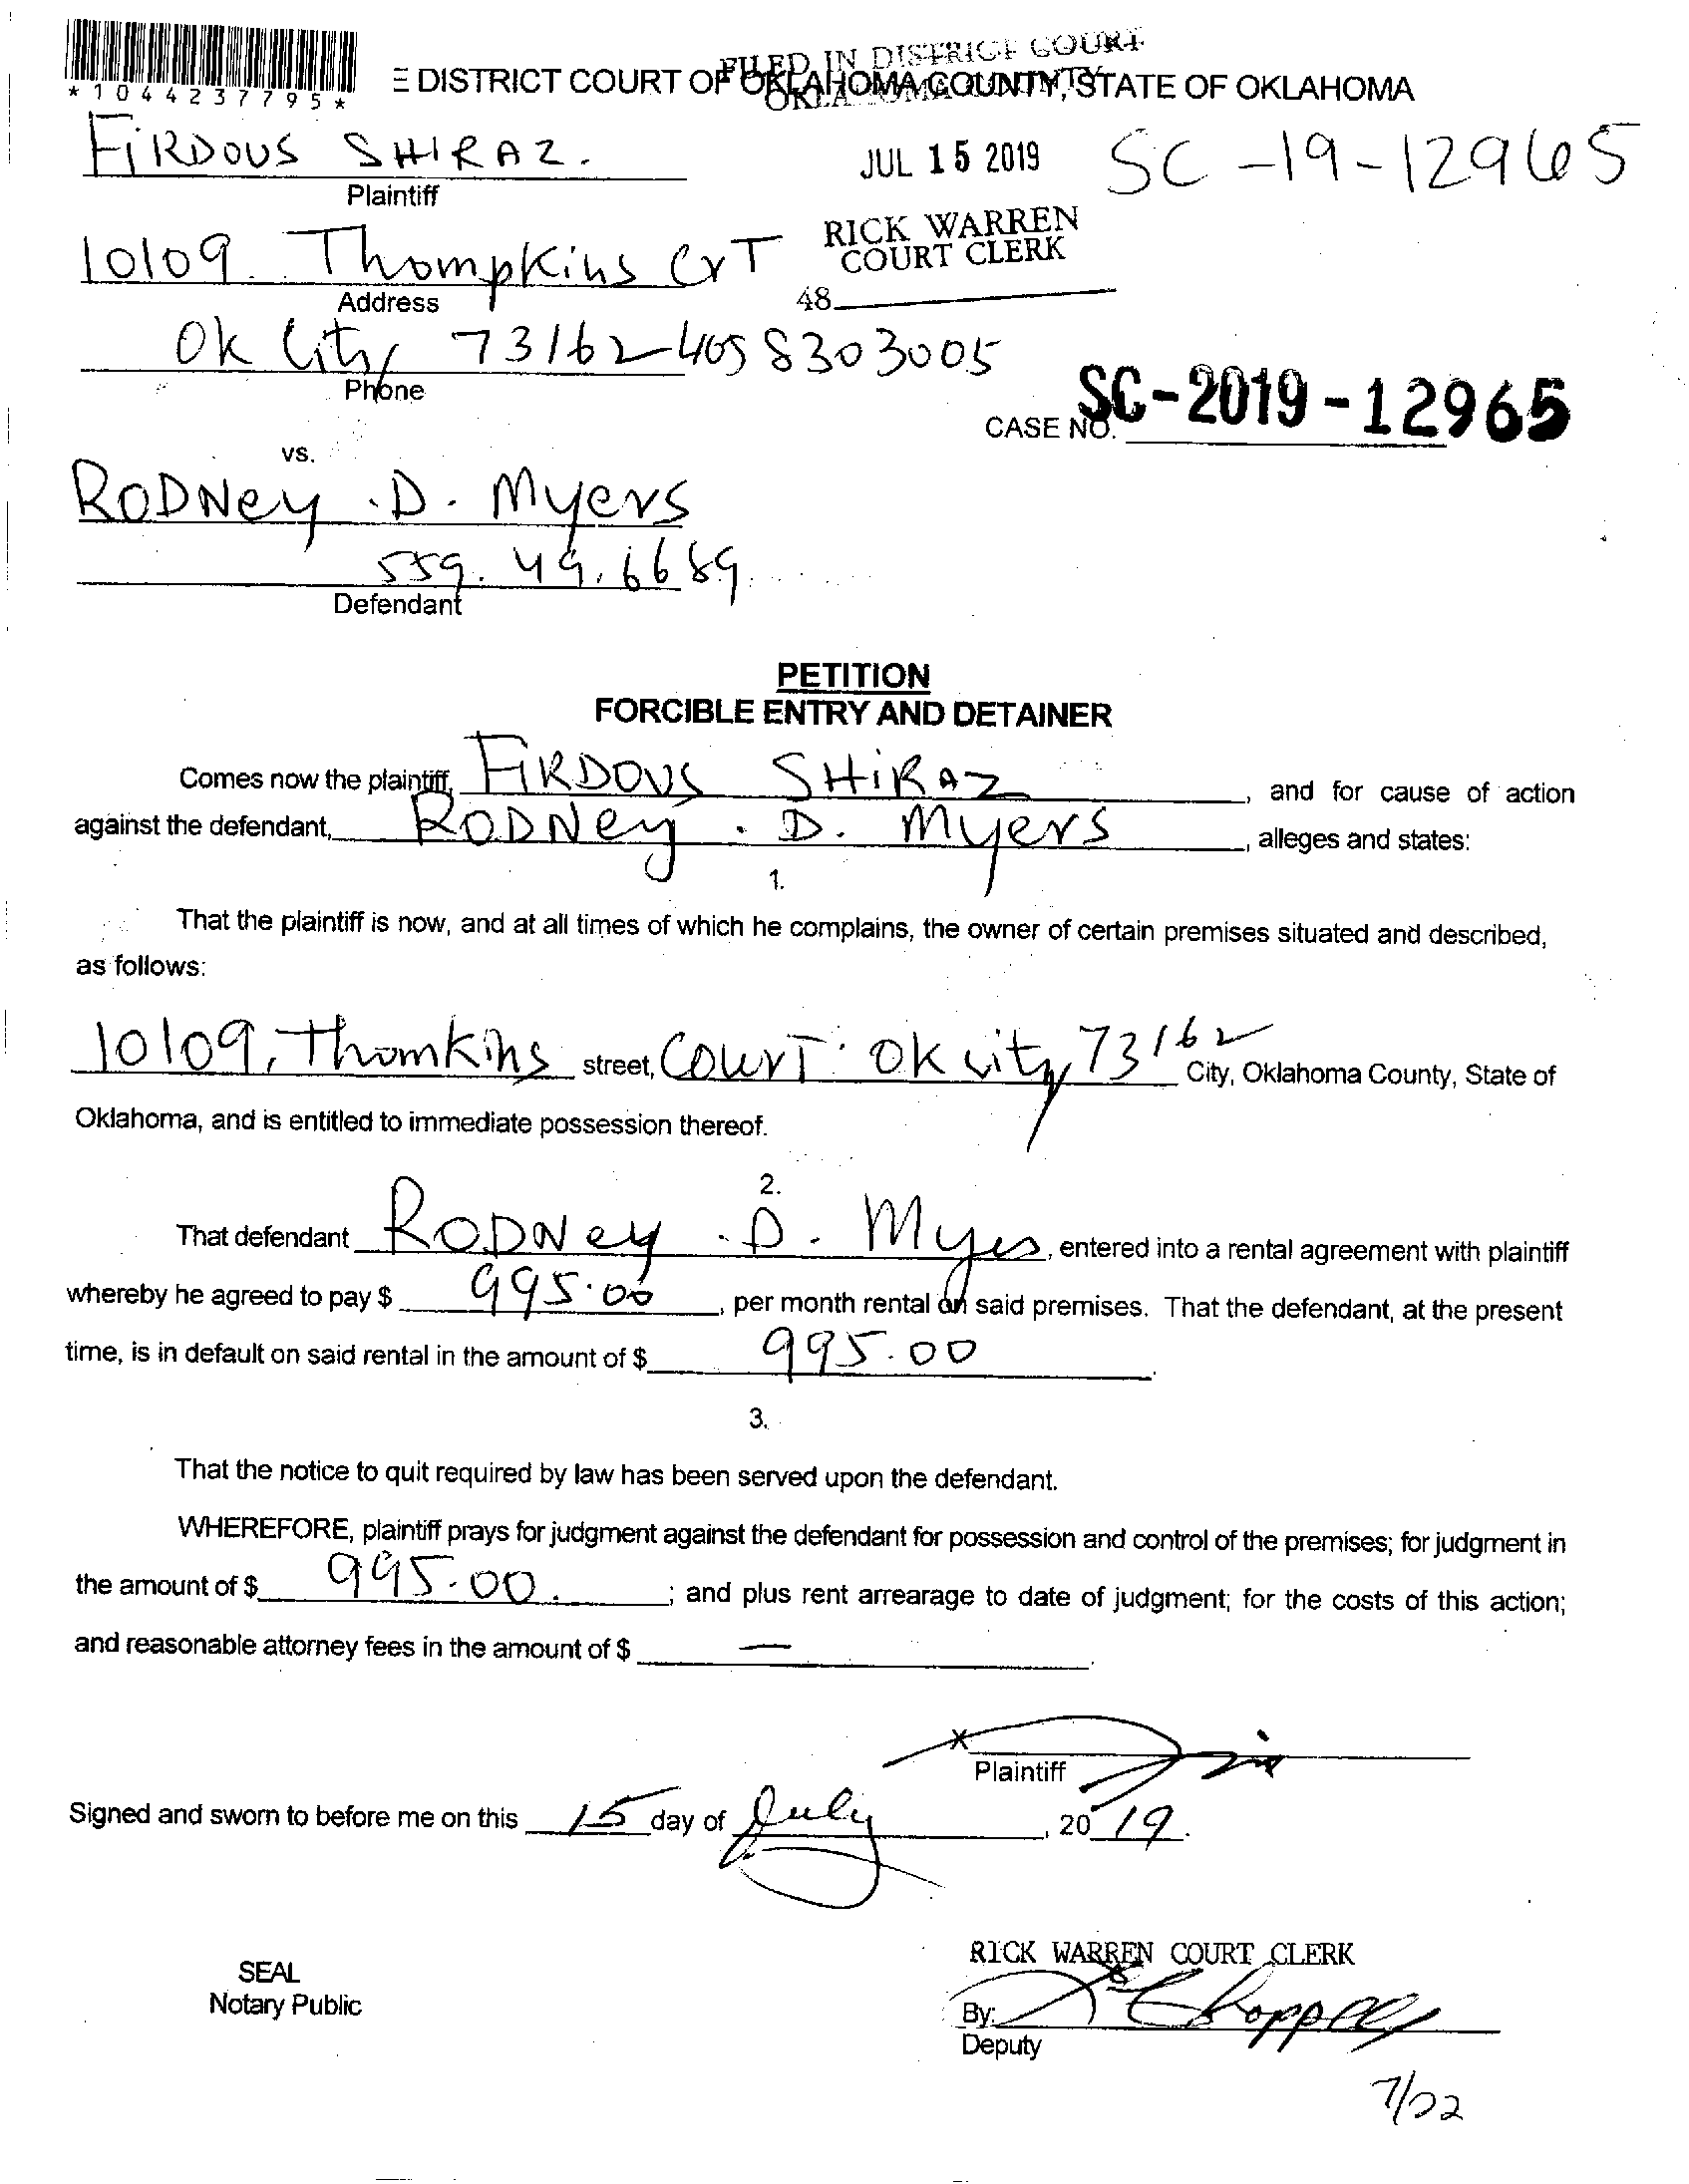 *1044237795*
E DISTRICT COURT OF OKLAHOMA COUNTY, STATE OF OKLAHOMA
FILED IN DISTRICT COURT
OKLAHOMA COUNTY
FIRDOUS SHIRAZ.
JUL 15 2019
SC-19-12965
Plaintiff
RICK WARREN
COURT CLERK
10109 Thompkins CrT
Address
48
Ok City 73162-4058303005
Phone
CASE NO. SC-2019-12965
vs.
RODNey .D. Myers
559.49.6689
Defendant
PETITION
FORCIBLE ENTRY AND DETAINER
Comes now the plaintiff, FIRDOUS SHIRAZ, and for cause of action
against the defendant, RODNey . D. Myers, alleges and states:
1.
That the plaintiff is now, and at all times of which he complains, the owner of certain premises situated and described,
as follows:
10109, Thomkins street, COURT OK City, 73162 City, Oklahoma County, State of
Oklahoma, and is entitled to immediate possession thereof.
2.
That defendant RODNey .D. Myers, entered into a rental agreement with plaintiff
whereby he agreed to pay $ 995.00, per month rental on said premises. That the defendant, at the present
time, is in default on said rental in the amount of $ 995.00.
3.
That the notice to quit required by law has been served upon the defendant.
WHEREFORE, plaintiff prays for judgment against the defendant for possession and control of the premises; for judgment in
the amount of $ 995.00.; and plus rent arrearage to date of judgment; for the costs of this action;
and reasonable attorney fees in the amount of $ —.
x
Plaintiff
Signed and sworn to before me on this 15 day of July, 20 19.
RICK WARREN COURT CLERK
SEAL
Notary Public
By:
Deputy
7/22